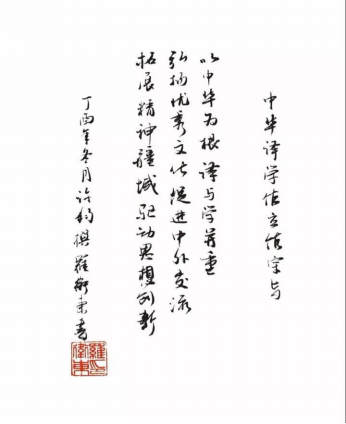 中华译学馆立馆宗旨
以中华为根 译与学并重
弘扬优秀文化 促进中外交流
拓展精神疆域 驱动思想创新
丁酉年冬月 许钧撰 罗卫东书